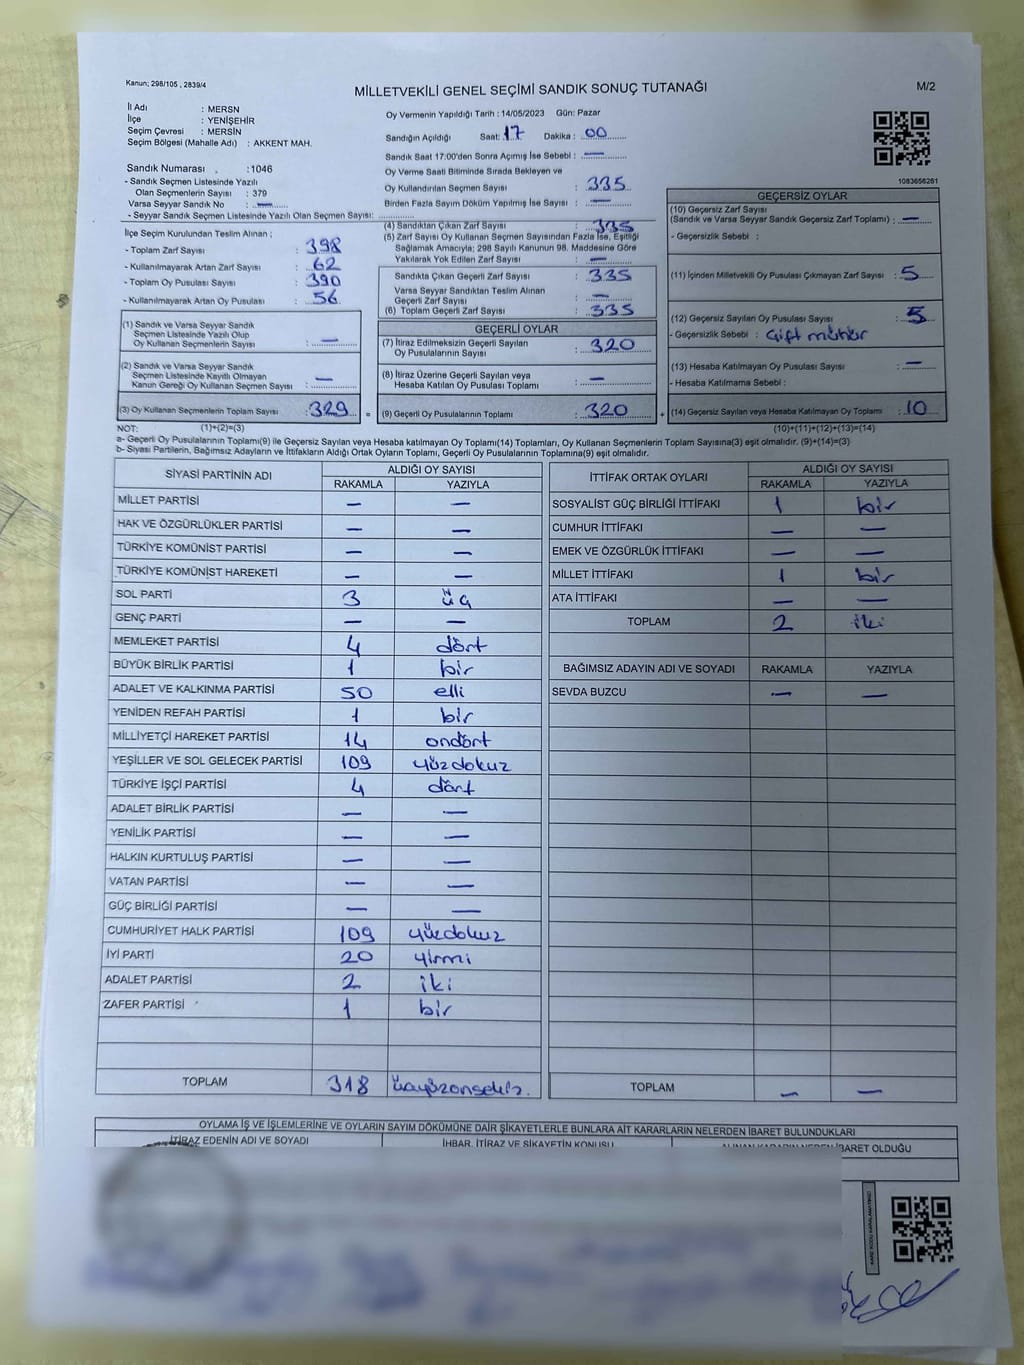 Kanun: 298/105 , 2839/4
MİLLETVEKİLİ GENEL SEÇİMİ SANDIK SONUÇ TUTANAĞI
M/2
İl Adı : MERSN
İlçe : YENİŞEHİR
Seçim Çevresi : MERSİN
Seçim Bölgesi (Mahalle Adı) : AKKENT MAH.
Sandık Numarası : 1046
- Sandık Seçmen Listesinde Yazılı
Olan Seçmenlerin Sayısı : 379
Varsa Seyyar Sandık No : —
- Seyyar Sandık Seçmen Listesinde Yazılı Olan Seçmen Sayısı:
İlçe Seçim Kurulundan Teslim Alınan ;
- Toplam Zarf Sayısı : 398
- Kullanılmayarak Artan Zarf Sayısı : 62
- Toplam Oy Pusulası Sayısı : 390
- Kullanılmayarak Artan Oy Pusulası : 56
(1) Sandık ve Varsa Seyyar Sandık
Seçmen Listesinde Yazılı Olup
Oy Kullanan Seçmenlerin Sayısı : —
(2) Sandık ve Varsa Seyyar Sandık
Seçmen Listesinde Kayıtlı Olmayan
Kanun Gereği Oy Kullanan Seçmen Sayısı : —
(3) Oy Kullanan Seçmenlerin Toplam Sayısı : 329 =
Oy Vermenin Yapıldığı Tarih : 14/05/2023 Gün: Pazar
Sandığın Açıldığı Saat: 17 Dakika : 00
Sandık Saat 17:00'den Sonra Açımış İse Sebebi : —
Oy Verme Saati Bitiminde Sırada Bekleyen ve
Oy Kullandırılan Seçmen Sayısı : 335
Birden Fazla Sayım Döküm Yapılmış İse Sayısı : —
(4) Sandıktan Çıkan Zarf Sayısı : 335
(5) Zarf Sayısı Oy Kullanan Seçmen Sayısından Fazla İse, Eşitliği
Sağlamak Amacıyla; 298 Sayılı Kanunun 98. Maddesine Göre
Yakılarak Yok Edilen Zarf Sayısı : —
Sandıkta Çıkan Geçerli Zarf Sayısı : 335
Varsa Seyyar Sandıktan Teslim Alınan
Geçerli Zarf Sayısı : —
(6) Toplam Geçerli Zarf Sayısı : 335
GEÇERLİ OYLAR
(7) İtiraz Edilmeksizin Geçerli Sayılan
Oy Pusulalarının Sayısı : 320
(8) İtiraz Üzerine Geçerli Sayılan veya
Hesaba Katılan Oy Pusulası Toplamı : —
(9) Geçerli Oy Pusulalarının Toplamı : 320 +
1083656261
GEÇERSİZ OYLAR
(10) Geçersiz Zarf Sayısı
(Sandık ve Varsa Seyyar Sandık Geçersiz Zarf Toplamı) : —
- Geçersizlik Sebebi :
(11) İçinden Milletvekili Oy Pusulası Çıkmayan Zarf Sayısı : 5
(12) Geçersiz Sayılan Oy Pusulası Sayısı : 5
- Geçersizlik Sebebi : Çift mühür
(13) Hesaba Katılmayan Oy Pusulası Sayısı : —
- Hesaba Katılmama Sebebi :
(14) Geçersiz Sayılan veya Hesaba Katılmayan Oy Toplamı : 10
NOT: (1)+(2)=(3) (10)+(11)+(12)+(13)=(14)
a- Geçerli Oy Pusulalarının Toplamı(9) ile Geçersiz Sayılan veya Hesaba katılmayan Oy Toplamı(14) Toplamları, Oy Kullanan Seçmenlerin Toplam Sayısına(3) eşit olmalıdır. (9)+(14)=(3)
b- Siyasi Partilerin, Bağımsız Adayların ve İttifakların Aldığı Ortak Oyların Toplamı, Geçerli Oy Pusulalarının Toplamına(9) eşit olmalıdır.
SİYASİ PARTİNİN ADI ALDIĞI OY SAYISI
RAKAMLA YAZIYLA
MİLLET PARTİSİ — —
HAK VE ÖZGÜRLÜKLER PARTİSİ — —
TÜRKİYE KOMÜNİST PARTİSİ — —
TÜRKİYE KOMÜNİST HAREKETİ — —
SOL PARTİ 3 üç
GENÇ PARTİ — —
MEMLEKET PARTİSİ 4 dört
BÜYÜK BİRLİK PARTİSİ 1 bir
ADALET VE KALKINMA PARTİSİ 50 elli
YENİDEN REFAH PARTİSİ 1 bir
MİLLİYETÇİ HAREKET PARTİSİ 14 ondört
YEŞİLLER VE SOL GELECEK PARTİSİ 109 yüzdokuz
TÜRKİYE İŞÇİ PARTİSİ 4 dört
ADALET BİRLİK PARTİSİ — —
YENİLİK PARTİSİ — —
HALKIN KURTULUŞ PARTİSİ — —
VATAN PARTİSİ — —
GÜÇ BİRLİĞİ PARTİSİ — —
CUMHURİYET HALK PARTİSİ 109 yüzdokuz
İYİ PARTİ 20 yirmi
ADALET PARTİSİ 2 iki
ZAFER PARTİSİ 1 bir
TOPLAM 318 üçyüzonsekiz.
İTTİFAK ORTAK OYLARI ALDIĞI OY SAYISI
RAKAMLA YAZIYLA
SOSYALİST GÜÇ BİRLİĞİ İTTİFAKI 1 bir
CUMHUR İTTİFAKI — —
EMEK VE ÖZGÜRLÜK İTTİFAKI — —
MİLLET İTTİFAKI 1 bir
ATA İTTİFAKI — —
TOPLAM 2 iki
BAĞIMSIZ ADAYIN ADI VE SOYADI RAKAMLA YAZIYLA
SEVDA BUZCU — —
TOPLAM — —
OYLAMA İŞ VE İŞLEMLERİNE VE OYLARIN SAYIM DÖKÜMÜNE DAİR ŞİKAYETLERLE BUNLARA AİT KARARLARIN NELERDEN İBARET BULUNDUKLARI
İTİRAZ EDENİN ADI VE SOYADI İHBAR, İTİRAZ VE ŞİKAYETİN KONUSU ALINAN KARARIN NEDEN İBARET OLDUĞU